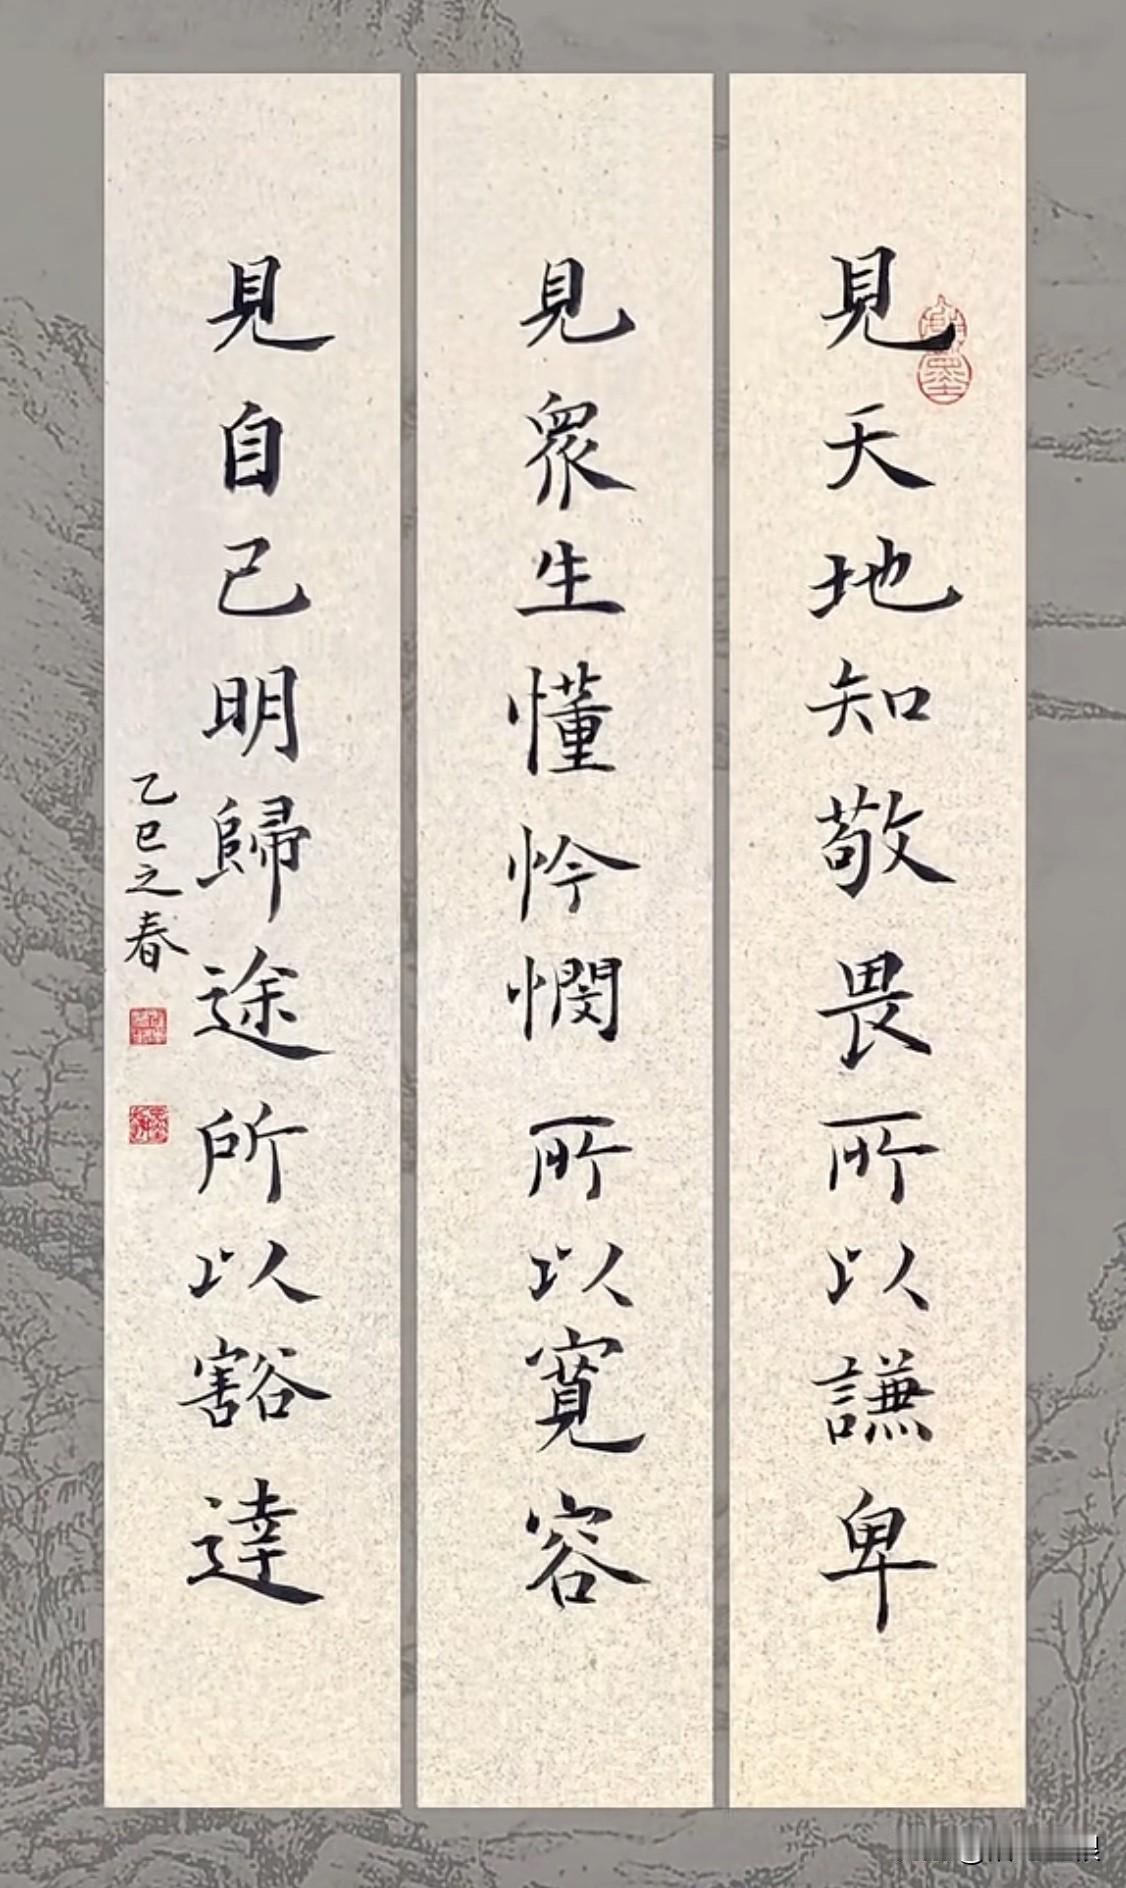 見天地知敬畏所以謙卑
見眾生懂怜憫所以寬容
見自己明歸途所以豁達
乙巳之春